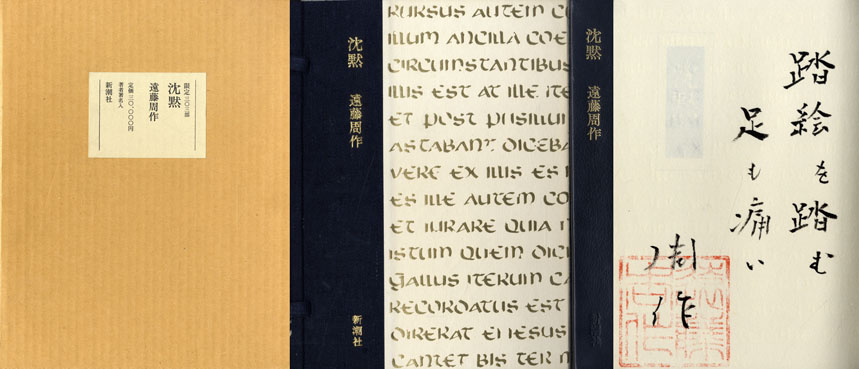 限定三〇三部
沈黙
遠藤周作
定価 三〇、〇〇〇円
著者署名入
新潮社
沈黙 遠藤周作
新潮社
RURSUS AUTEM CO
ILLUM ANCILLA COE
CIRCUMSTANTIBUS
ILLIS EST AT ILLE ITE
ET POST PUSILLUM
ASTABANT DICEBA
VERE EX ILLIS ES
ES ILLE AUTEM CO
ET IURARE QUIA
ISTUM QUEM DICI
GALLUS ITERUM CA
RECORDATUS EST
DIXERAT EI IESUS
CANTET BIS TER
沈黙 遠藤周作
踏絵を踏む
足も痛い
周作